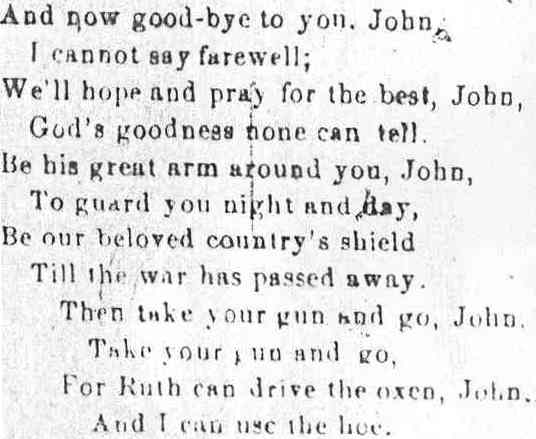 And now good-bye to you. John,
I cannot say farewell;
We'll hope and pray for the best, John,
God's goodness none can tell.
Be his great arm around you, John,
To guard you night and day,
Be our beloved country's shield
Till the war has passed away.
Then take your gun and go, John.
Take your gun and go,
For Ruth can drive the oxen, John.
And I can use the hoe.